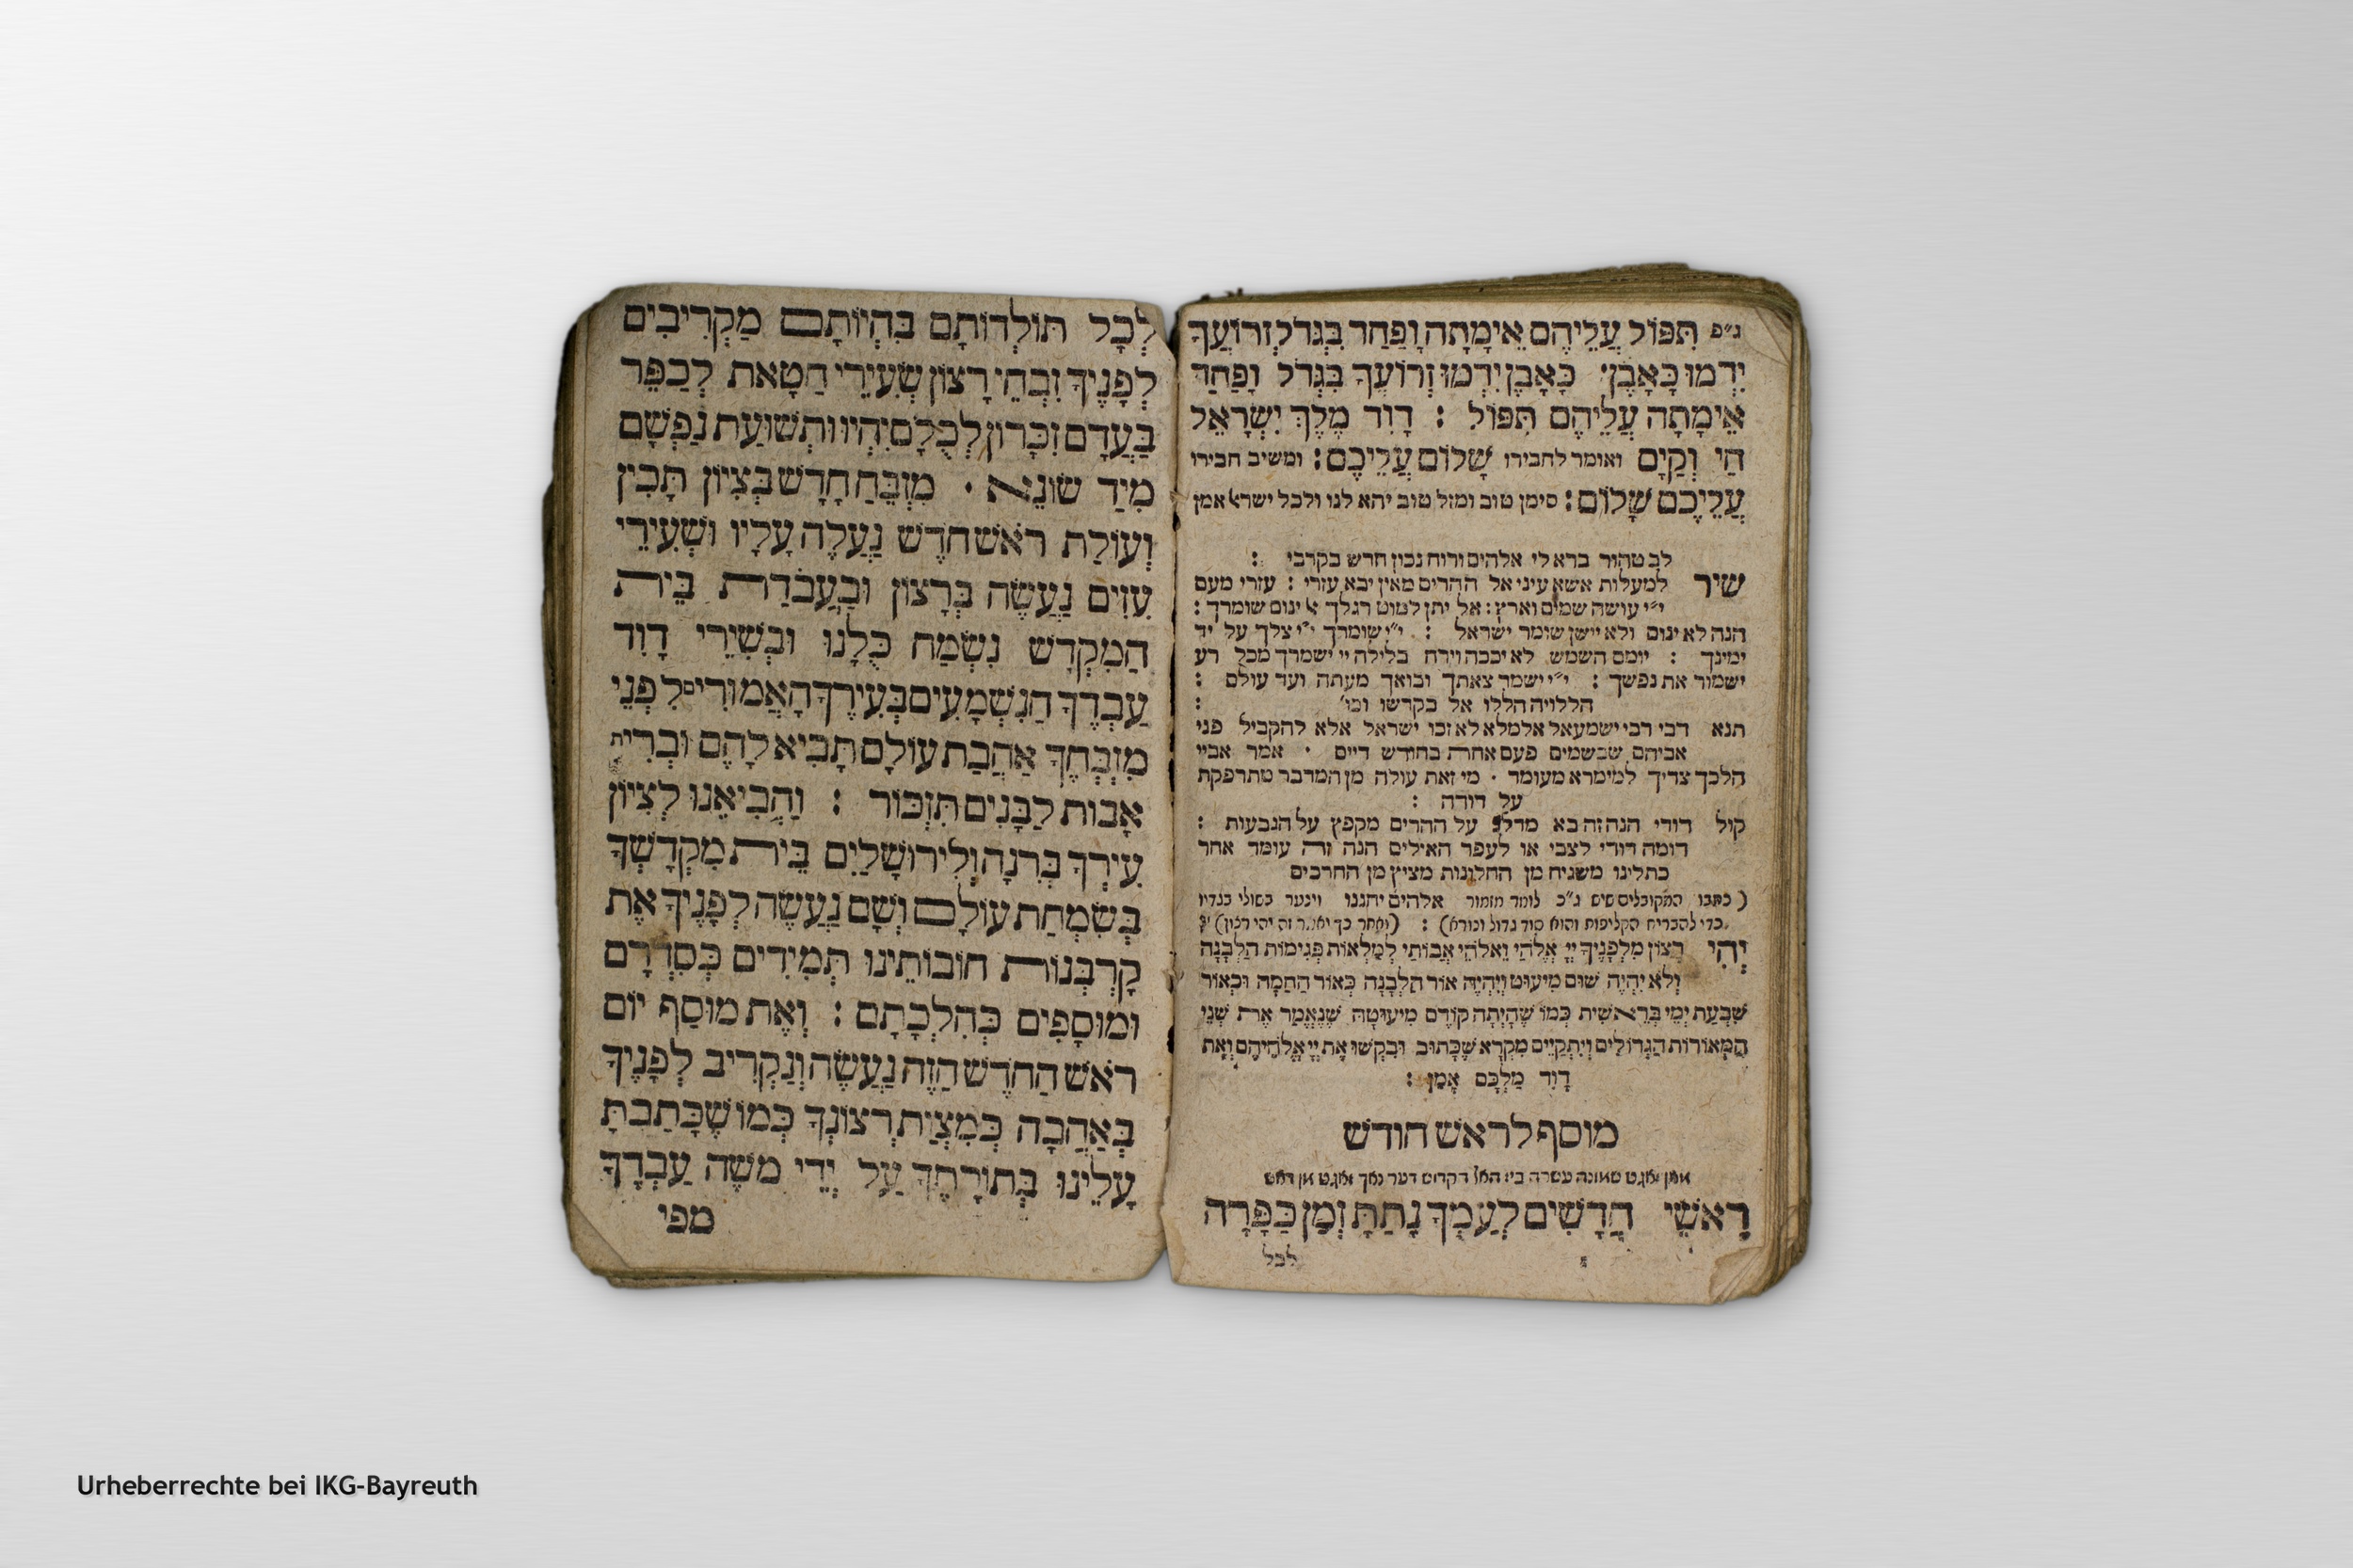 ג״פ תִּפּוֹל עֲלֵיהֶם אֵימָתָה וָפַחַד בִּגְדֹל זְרוֹעֲךָ
יִדְּמוּ כָּאָבֶן׃ כָּאָבֶן יִדְּמוּ זְרוֹעֲךָ בִּגְדֹל וָפַחַד
אֵימָתָה עֲלֵיהֶם תִּפּוֹל : דָוִד מֶלֶךְ יִשְׂרָאֵל
חַי וְקַיָם ואומר לחבירו שָׁלוֹם עֲלֵיכֶם: ומשיב חבירו
עֲלֵיכֶם שָׁלוֹם: סימן טוב ומזל טוב יהא לנו ולכל ישראל אמן
לב טהור ברא לי אלהים ורוח נכון חדש בקרבי :
שיר למעלות אשא עיני אל ההרים מאין יבא עזרי : עזרי מעם
י״י עושה שמים וארץ : אל יתן למוט רגלך אל ינום שומרך :
הנה לא ינום ולא יישן שומר ישראל : י״י שומרך י״י צלך על יד
ימינך : יומם השמש לא יככה וירח בלילה יי ישמרך מכל רע
ישמור את נפשך : י״י ישמר צאתך ובואך מעתה ועד עולם :
הללויה הללו אל בקדשו וכו׳ :
תנא דבי רבי ישמעאל אלמלא לא זכו ישראל אלא להקביל פני
אביהם שבשמים פעם אחת בחודש דיים · אמר אביי
הלכך צריך למימרא מעומד · מי זאת עולה מן המדבר מתרפקת
על דודה :
קול דודי הנה זה בא מדלג על ההרים מקפץ על הגבעות :
דומה דודי לצבי או לעפר האילים הנה זה עומד אחר
כתלינו משגיח מן החלונות מציץ מן החרכים
( כתבו המקובלים שיש ג״כ לומר מזמור אלהים יחננו וינער בשולי בגדיו
כדי להבריח הקליפות והוא סוד גדול ונורא) : (ואחר כך יאמר זה יהי רצון)
יְהִי רָצוֹן מִלְפָנֶיךָ יְיָ אֱלֹהַי וֵאלֹהֵי אֲבוֹתַי לְמַלְאוֹת פְּגִימוֹת הַלְבָנָה
וְלֹא יִהְיֶה שׁוּם מִיעוּט וְיִהְיֶה אוֹר הַלְבָנָה כְּאוֹר הַחַמָה וּכְאוֹר
שִׁבְעַת יְמֵי בְּרֵאשִׁית כְּמוֹ שֶׁהָיְתָה קוֹדֶם מִיעוּטָהּ שֶׁנֶאֱמַר אֶת שְׁנֵי
הַמְּאוֹרוֹת הַגְדוֹלִים וְיִתְקַיֵים מִקְרָא שֶׁכָּתוּב וּבִקְשׁוּ אֶת יְיָ אֱלֹהֵיהֶם וְאֶת
דָוִד מַלְכָּם אָמֵן :
מוסף לראש חודש
מען זאגט שמונה עשרה ביז האל הקדוש דער נאך זאגט מן דאש
רָאשֵׁי חֳדָשִׁים לְעַמְךָ נָתַתָּ זְמַן כַּפָּרָה
לכל
לְכָל תּוֹלְדוֹתָם בִּהְיוֹתָם מַקְרִיבִים
לְפָנֶיךָ זִבְחֵי רָצוֹן שְׂעִירֵי חַטָאת לְכַפֵּר
בַּעֲדָם זִכָּרוֹן לְכֻלָם יִהְיוּ וּתְשׁוּעַת נַפְשָׁם
מִיַד שׂוֹנֵא · מִזְבֵּחַ חָדָשׁ בְּצִיוֹן תָּכִין
וְעוֹלַת רֹאשׁ חֹדֶשׁ נַעֲלֶה עָלָיו וּשְׂעִירֵי
עִזִים נַעֲשֶׂה בְּרָצוֹן וּבַעֲבֹדַת בֵּית
הַמִקְדָשׁ נִשְׂמַח כֻּלָנוּ וּבְשִׁירֵי דָוִד
עַבְדֶךָ הַנִשְׁמָעִים בְּעִירֶךָ הָאֲמוּרִים לִפְנֵי
מִזְבְּחֶךָ אַהֲבַת עוֹלָם תָּבִיא לָהֶם וּבְרִית
אָבוֹת לַבָּנִים תִּזְכּוֹר : וַהֲבִיאֵנוּ לְצִיוֹן
עִירְךָ בְּרִנָה וְלִירוּשָׁלַיִם בֵּית מִקְדָשְׁךָ
בְּשִׂמְחַת עוֹלָם וְשָׁם נַעֲשֶׂה לְפָנֶיךָ אֶת
קָרְבְּנוֹת חוֹבוֹתֵינוּ תְּמִידִים כְּסִדְרָם
וּמוּסָפִים כְּהִלְכָתָם : וְאֶת מוּסַף יוֹם
רֹאשׁ הַחֹדֶשׁ הַזֶה נַעֲשֶׂה וְנַקְרִיב לְפָנֶיךָ
בְּאַהֲבָה כְּמִצְוַת רְצוֹנֶךָ כְּמוֹ שֶׁכָּתַבְתָּ
עָלֵינוּ בְּתוֹרָתֶךָ עַל יְדֵי מֹשֶׁה עַבְדֶךָ
מפי
Urheberrechte bei IKG-Bayreuth